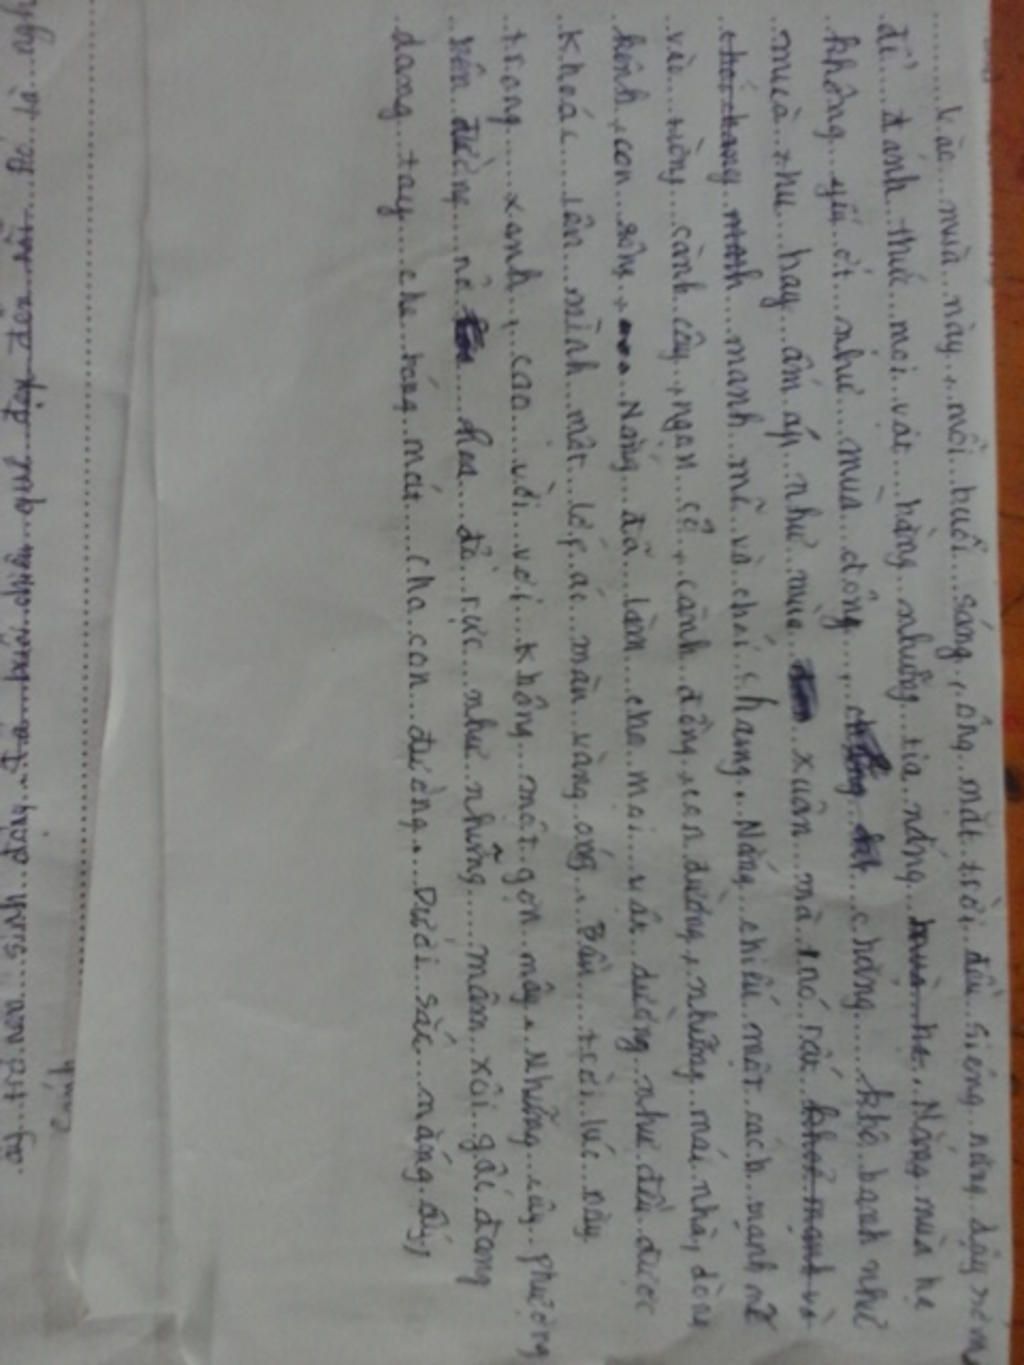 Vào mùa này, mỗi buổi sáng, ông mặt trời đều siêng năng dậy sớm
để đánh thức mọi vật bằng những tia nắng mùa hè. Nắng mùa hạ
không yếu ớt như mùa đông, chẳng khô hanh như
mùa thu hay ấm áp như mùa xuân mà nó rất khoẻ mạnh và
chói chang mạnh mẽ và chói chang. Nắng chiếu một cách mạnh mẽ
vào từng cành cây, ngọn cỏ, cánh đồng, con đường, những mái nhà, dòng
kênh, con sông, ... Nắng đã làm cho mọi vật dường như đều được
khoác lên mình một lớp áo màu vàng óng. Bầu trời lúc này
trong xanh, cao vời vợi không một gợn mây. Những cây phượng
trên đường nở hoa đỏ rực như những mâm xôi gấc đang
dang tay che bóng mát cho con đường. Dưới sắc nắng ấy,